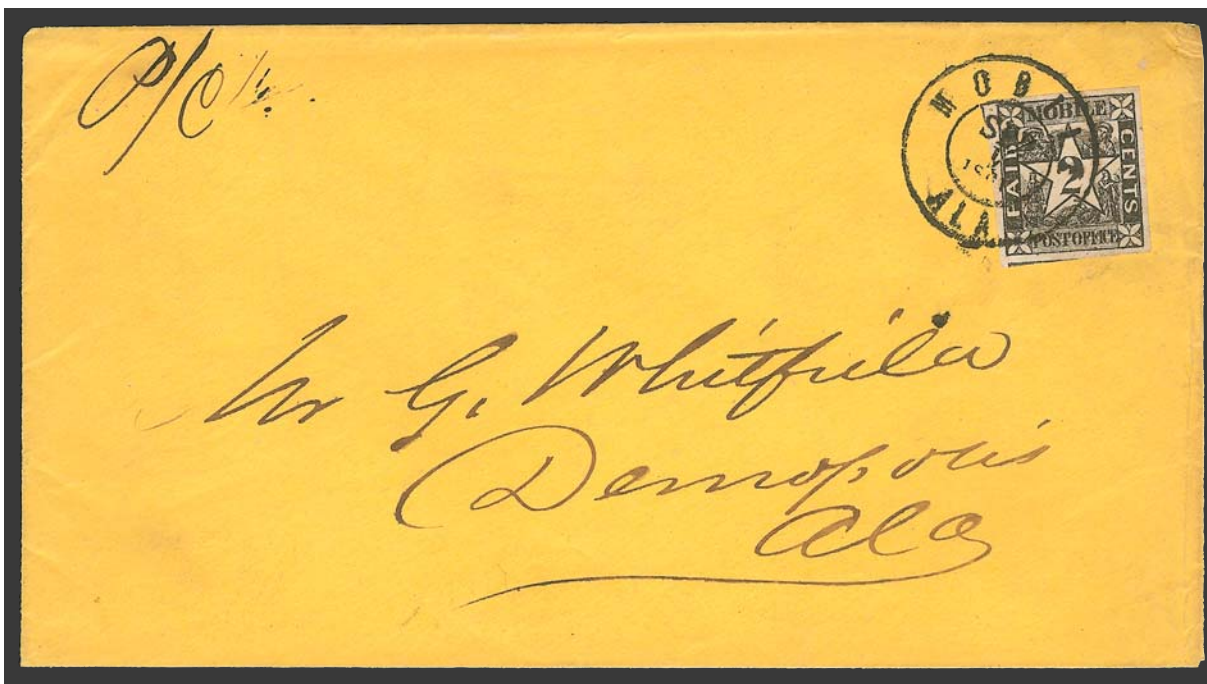 P/C
MOBILE
PAID
2
CENTS
POST OFFICE
ALA
Mr G. Whitfield
Demopolis
Ala